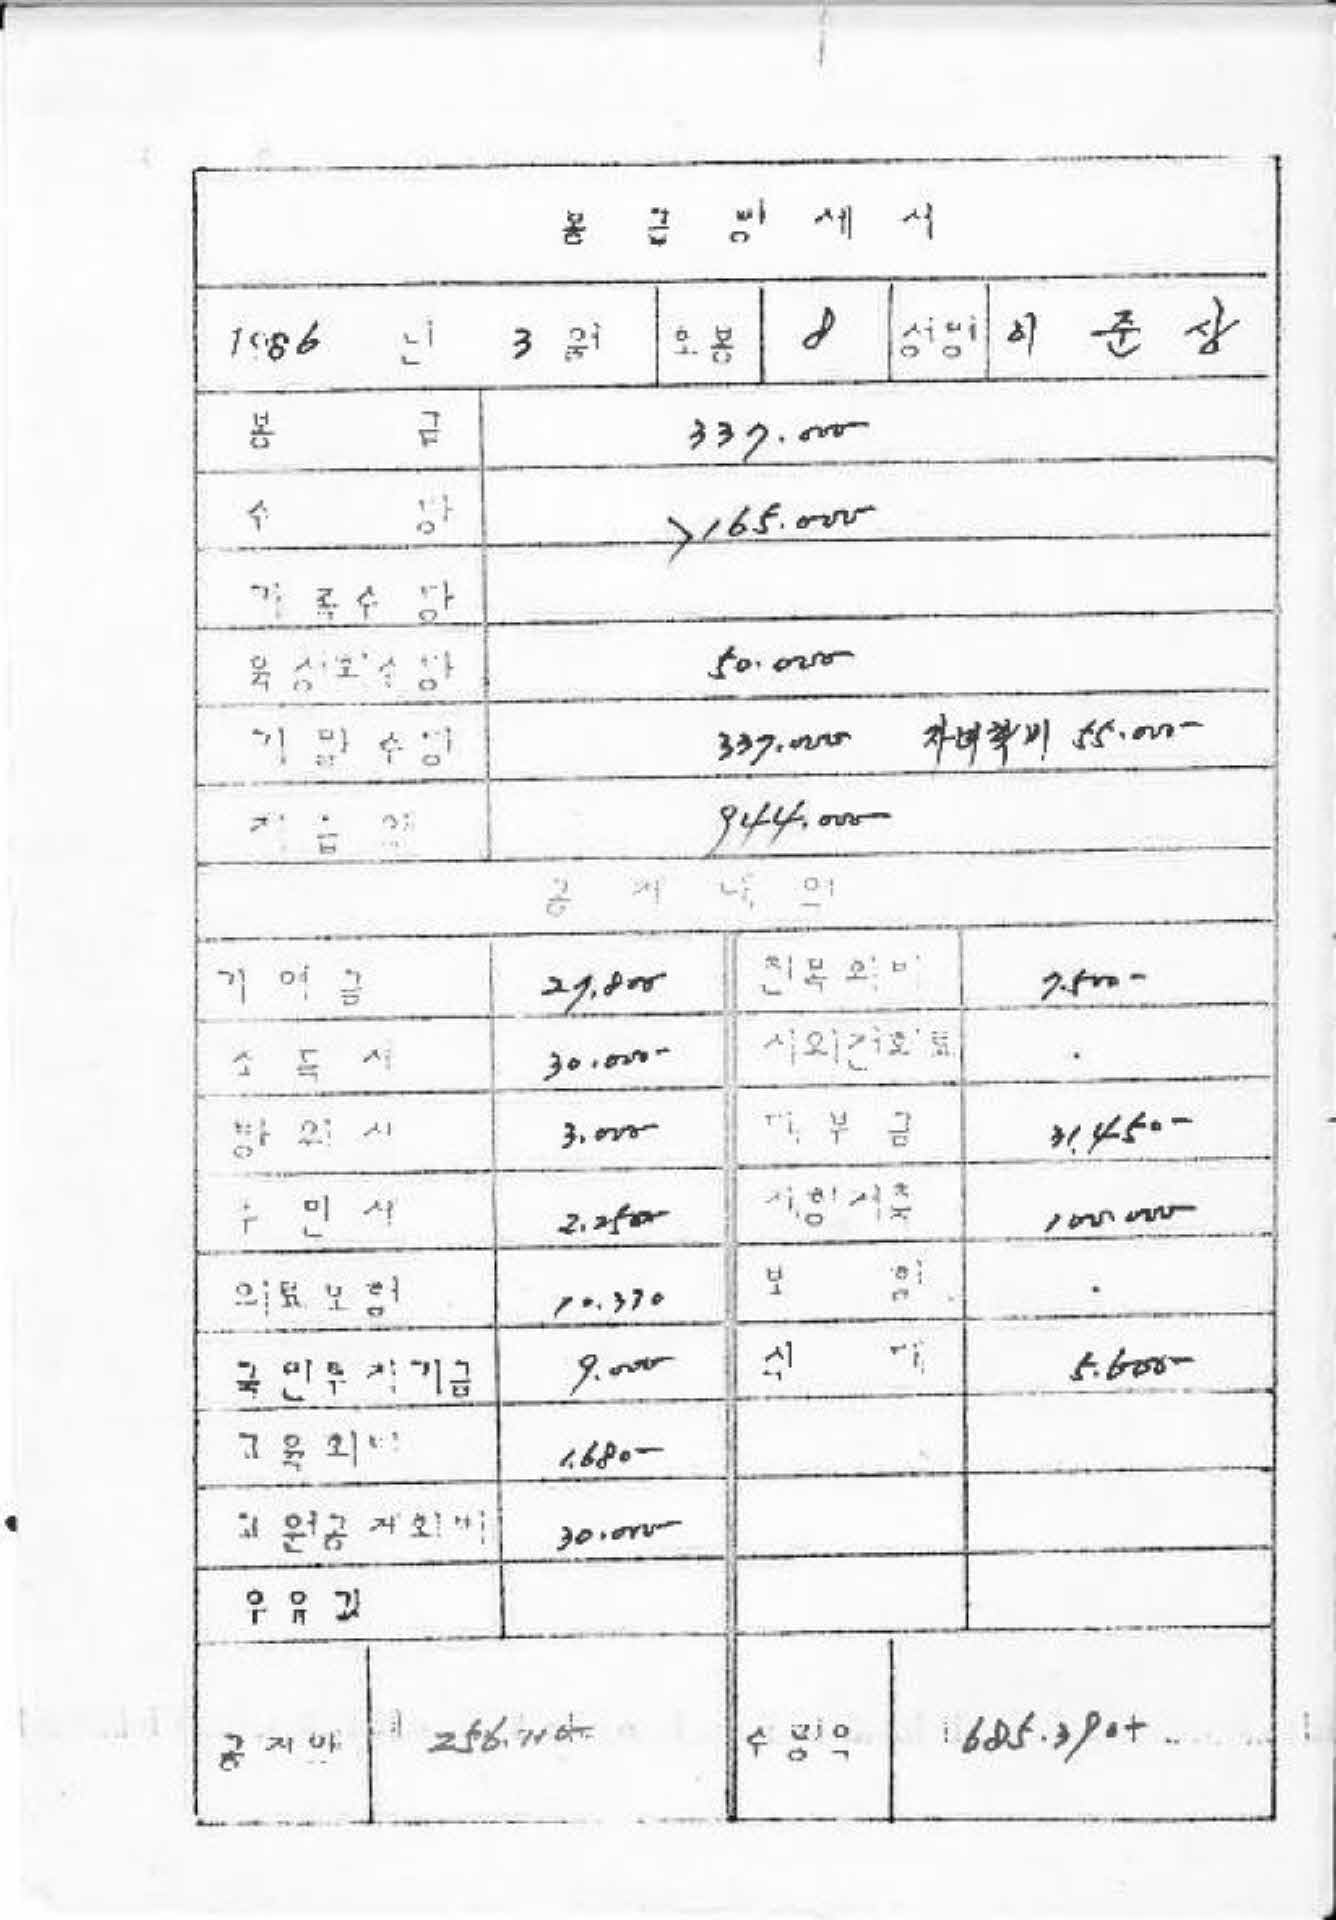 봉 급 명 세 서
1986 년 3 월 호봉 8 성명 이 준 상
봉 급 337.000
수 당 165.000
가 족 수 당
육성회수당 50.000
기 말 수 당 337.000 자녀학비 55.000-
지 급 액 944.000
공 제 내 역
기 여 금 27.800 친 목 회 비 7.500-
소 득 세 30.000- 시외전화료
방 위 세 3.000 대 부 금 31.450-
주 민 세 2.250 저축 100.000
의 료 보 험 10.370 보 험
국 민 투 자 기 금 9.000 식 대 5.600-
교 육 회 비 1.680-
교 원 공 제 회 비 30.000
우 유 값
공 제 액 수 령 액 685.390